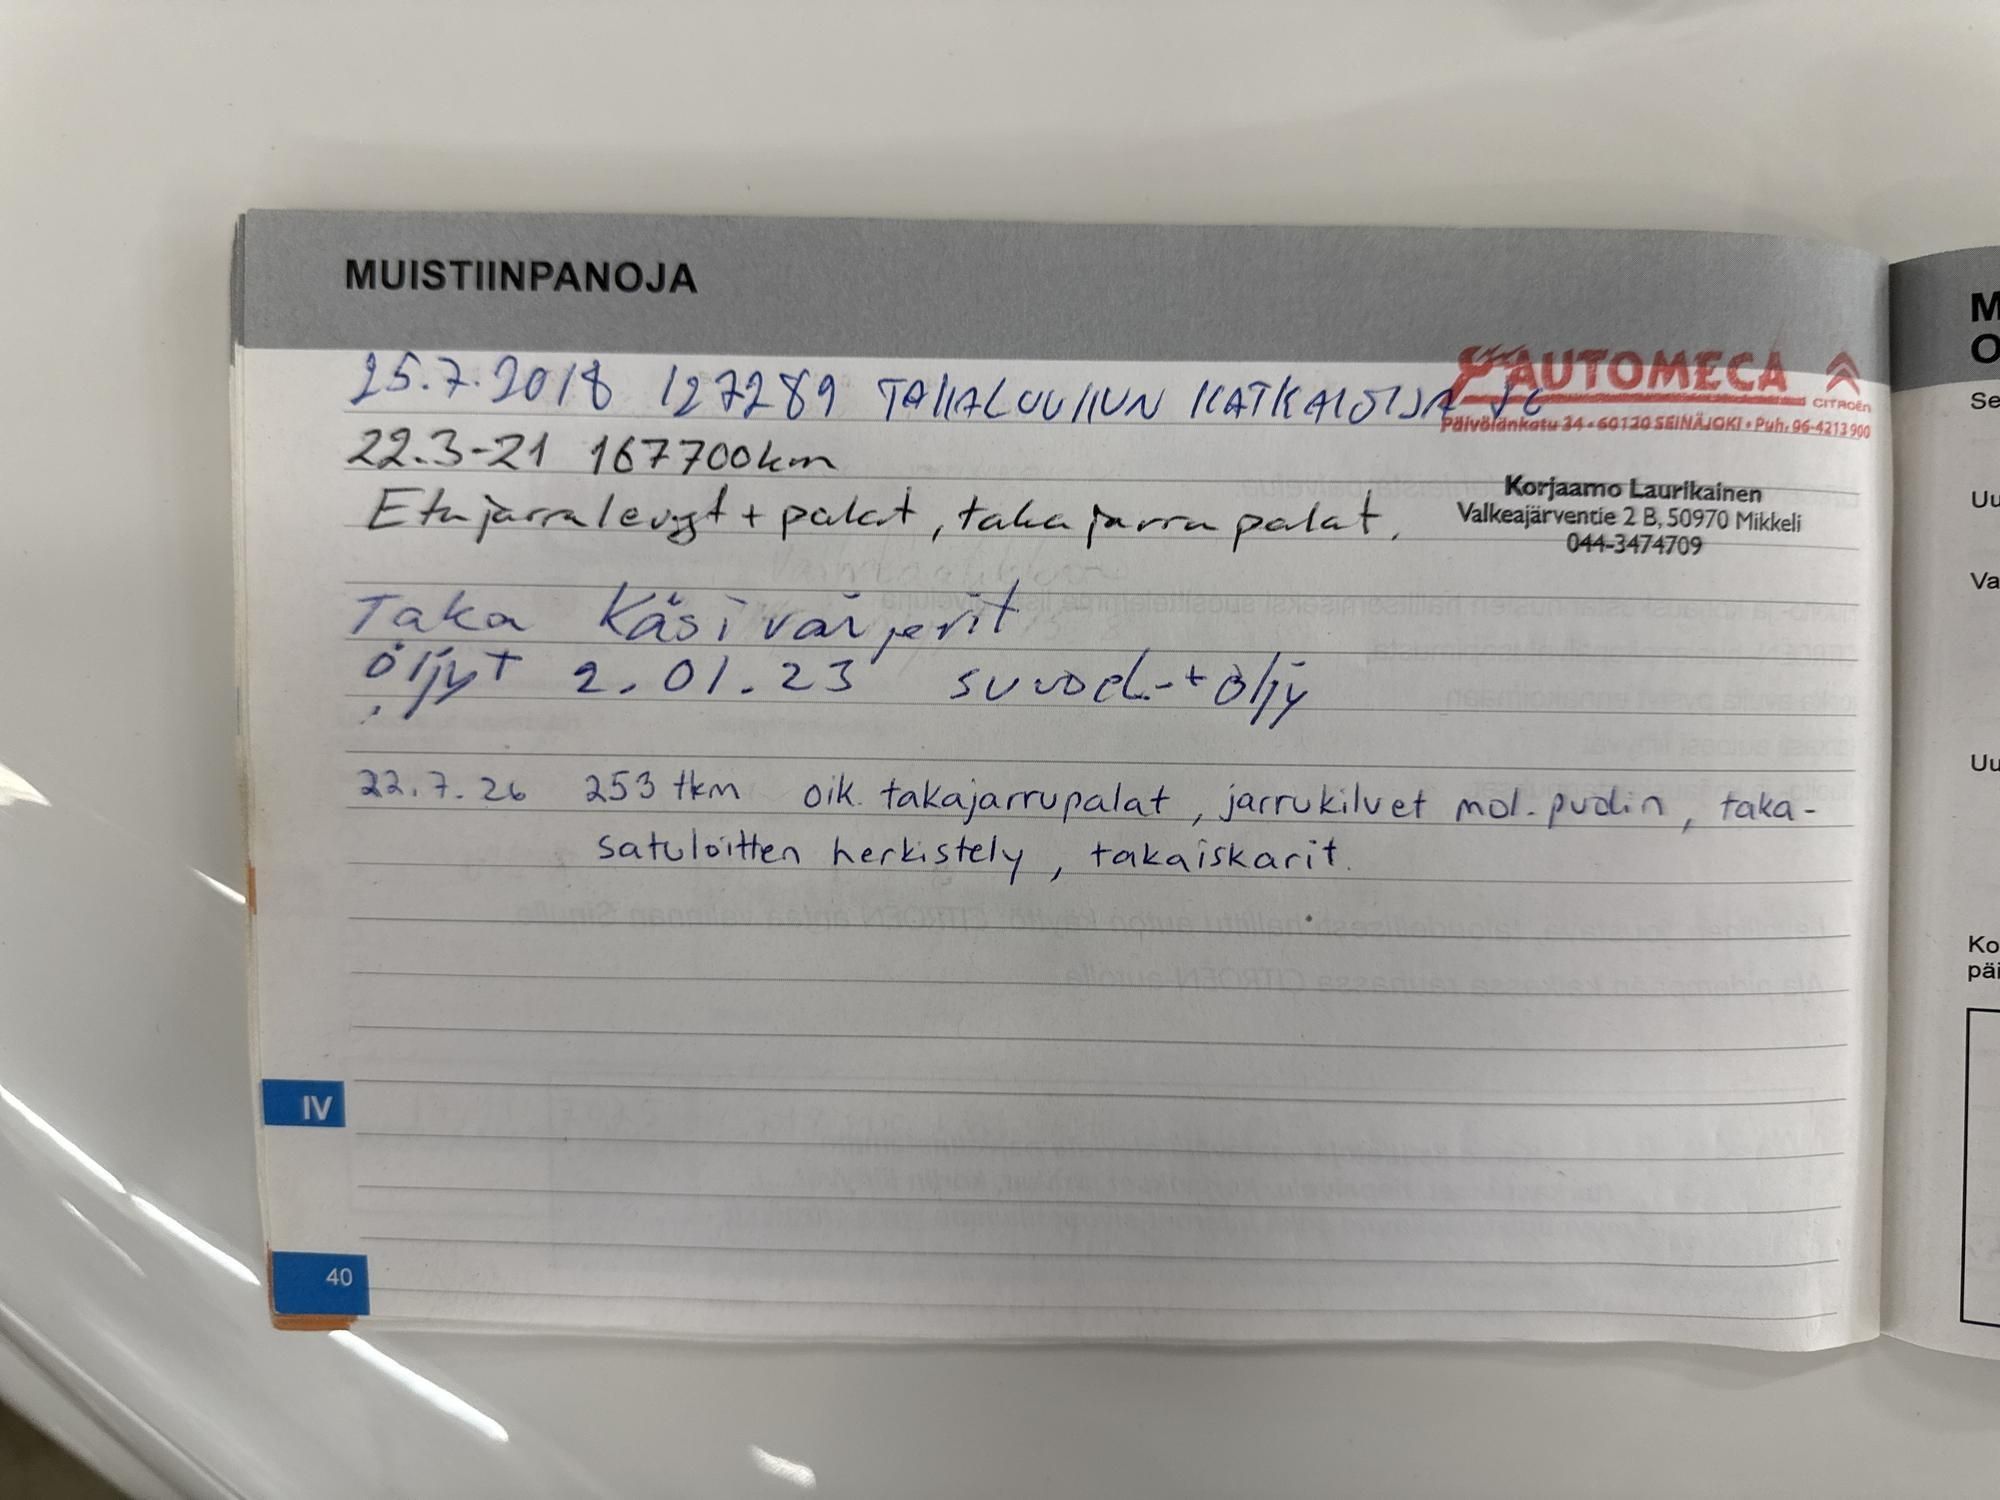 MUISTIINPANOJA
25.7.2018 127289 TAKALUUKUN KATKAISIJA
AUTOMECA
CITROËN
Päivölänkatu 34 • 60120 SEINÄJOKI • Puh. 06-4213 900
22.3-21 167700km
Etujarrulevyt + palat, takajarrupalat.
Korjaamo Laurikainen
Valkeajärventie 2 B, 50970 Mikkeli
044-3474709
Taka Käsivarjerit
öljyt 2.01.23 suvod.+ öljy
22.7.26 253 tkm oik. takajarrupalat, jarrukilvet mol. pudin, taka-
satuloitten herkistely, takaiskarit.
IV
40
M
O
Se
Uu
Va
Uu
Ko
päi